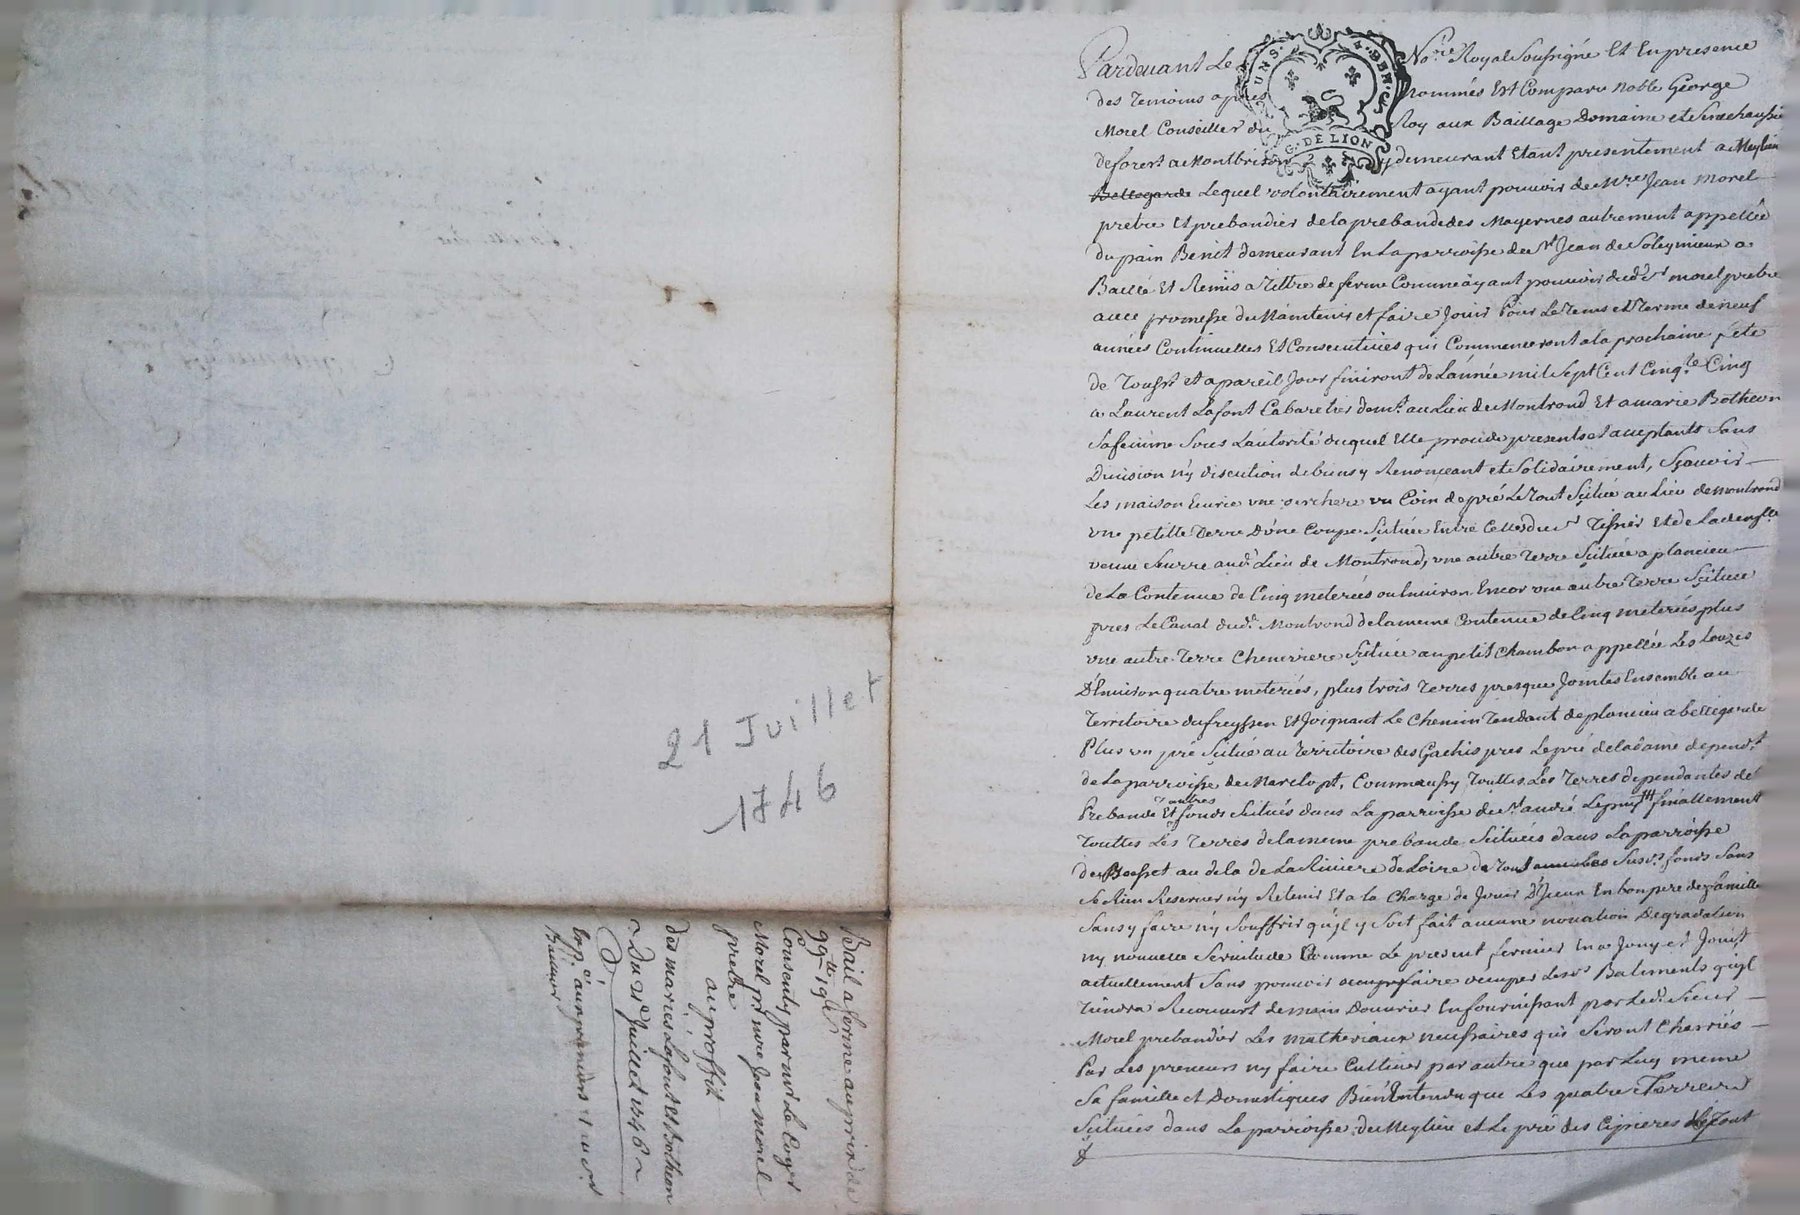 Pardevant Le No.re Royal Soussigné Et En presence
des temoins apres nommés Est Comparu noble George
Morel Conseiller du Roy aux Baillage Domaine et Senechaussée
de forest a Montbrison y demeurant Etant presentement a Meylieu
Bellegarde Lequel volontairement ayant pouvoir de M.re Jean Morel
pretre Et prebandier de la prebande des Mayernes autrement appellée
du pain Benit demeurant En La parroisse de S.t Jean de Soleymieux a
Baillé Et Remis a Tittre de ferme Comme ayant pouvoir dud.t S.r morel pretre
avec promesse de Maintenir et faire Jouir Pour Le Tems et Terme de neuf
années Continuelles Et Consecutives qui Commenceront a la prochaine fete
de Touss.t et a pareil Jour finiront de L'année mil Sept Cent Cinq.te Cinq
a Laurent Lafont Cabaretier dem.t au Lieu de Montrond Et a marie Botheon
Sa femme Sous L'autorité duquel Elle procede presents et acceptants Sans
Division n'y discution de biens y Renonceant et Solidairement, Sçavoir
Les maison Ecurie une vn Coin de pré Le Tout Scitué au Lieu de montrond
vne petitte Terre D'une Coupe Scituée Entre Celles du S.r Tissier Et de La
veuve aud.t Lieu de Montrond, vne autre Terre Scituée a plancieu
de La Contenue de Cinq meterées ou Environ Encor vne autre Terre Scituée
pres Le Canal dud.t Montrond de la meme Contenue de Cinq meterées plus
vne autre Terre Cheneviere Scituée au petit Chambon appellée Les
D'Environ quatre meterées, plus trois Terres presque Jointes Ensemble au
Territoire du Et Joignant Le Chemin Tendant de plancieu a bellegarde
Plus vn pré Scitué au Territoire des Gachis pres Le pré de la dame depend.t
de La parroisse de Marclopt, Comme aussy Touttes Les Terres dependantes de
Prebande Et autres fonds Scitués dans La parroisse de S.t André Le puy finallement
Touttes Les Terres de la meme prebande Scituées dans La parroisse
de Boisset au dela de La Riviere de Loire de tous Susd.s fonds Sans
Se Rien Reserver n'y Retenir Et a la Charge de Jouir D'Jceux En bon pere de famille
Sans y faire n'y Souffrir qu'il y Soit fait aucune novation Degradation
ny nouvelle Servitude Comme Le present fermier En a Jouy et Jouit
actuellement Sans pouvoir faire Les Batiments qu'jl
Tiendra Recouvert de main D'ouvrier En fournissant par Led.t Sieur
Morel prebandier Les matheriaux necessaires qui Seront Charriés
Par Les preneurs ny faire Cultiver par autre que par Luy meme
Sa famille et Domestiques Bien Entendu que Les quatre Terres
Scituées dans La parroisse de Meylieu et Le pré des Le Tout
21 Juillet
1746
Bail a ferme au prix de
99.tt 19.s
Consenty par m.r Le Con.er
Morel pr m.re Jean Morel
pretre
au proffit
des mariés Lafont Et Botheon
Du 21.e Juillet 1746
Exp. a
Bailleur